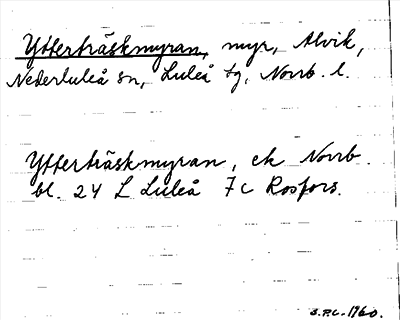 Ytterträskmyran, myr, Alvik,
Nederluleå sn, Luleå tg, Norrb. l.
Ytterträskmyran, ek Norrb.
bl. 24 L Luleå 7c Rosfors.
S.P.C. 1960.